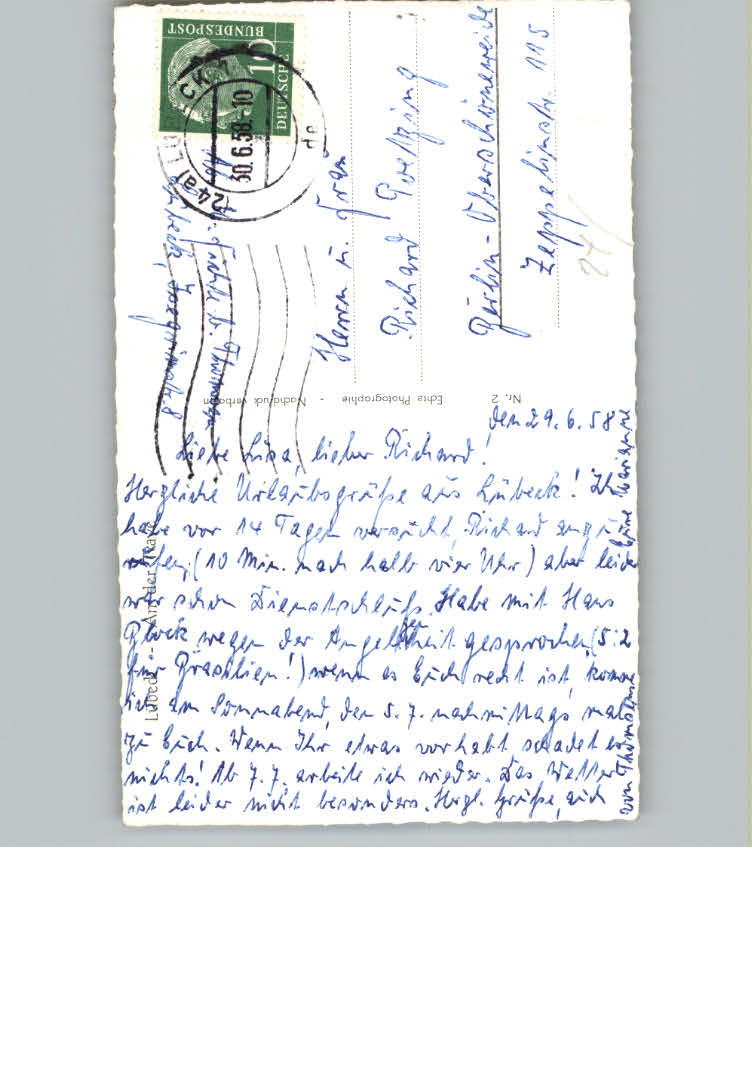 DEUTSCHE
BUNDESPOST
10
(24a) LÜBECK 1
30.6.58.-10
de
Abs. Thomsen
Lübeck,
Herrn u. Frau
Richard Poetzing
Berlin-Oberschöneweide
Zeppelinstr. 115
24/
Nr. 2 Echte Photographie - Nachdruck verboten
Lübeck - An der Trave
den 29.6.58
Liebe Lisa, lieber Richard!
Herzliche Urlaubsgrüße aus Lübeck! Ich
habe vor 14 Tagen versucht, Richard anzu
rufen, (10 Min. nach halb vier Uhr) aber leider
war schon Dienstschluß. Habe mit Hans
Glock wegen der Angelegenheit gesprochen (5:2
für Brasilien!) wenn es Euch recht ist, komme
ich am Sonnabend, den 5.7. nachmittags mal
zu Euch. Wenn Ihr etwas vorhabt schadet es
nichts! Ab 7.7. arbeite ich wieder. Das Wetter
ist leider nicht besonders. Herzl. Grüße, auch
von Thomsens
Eure Marianne